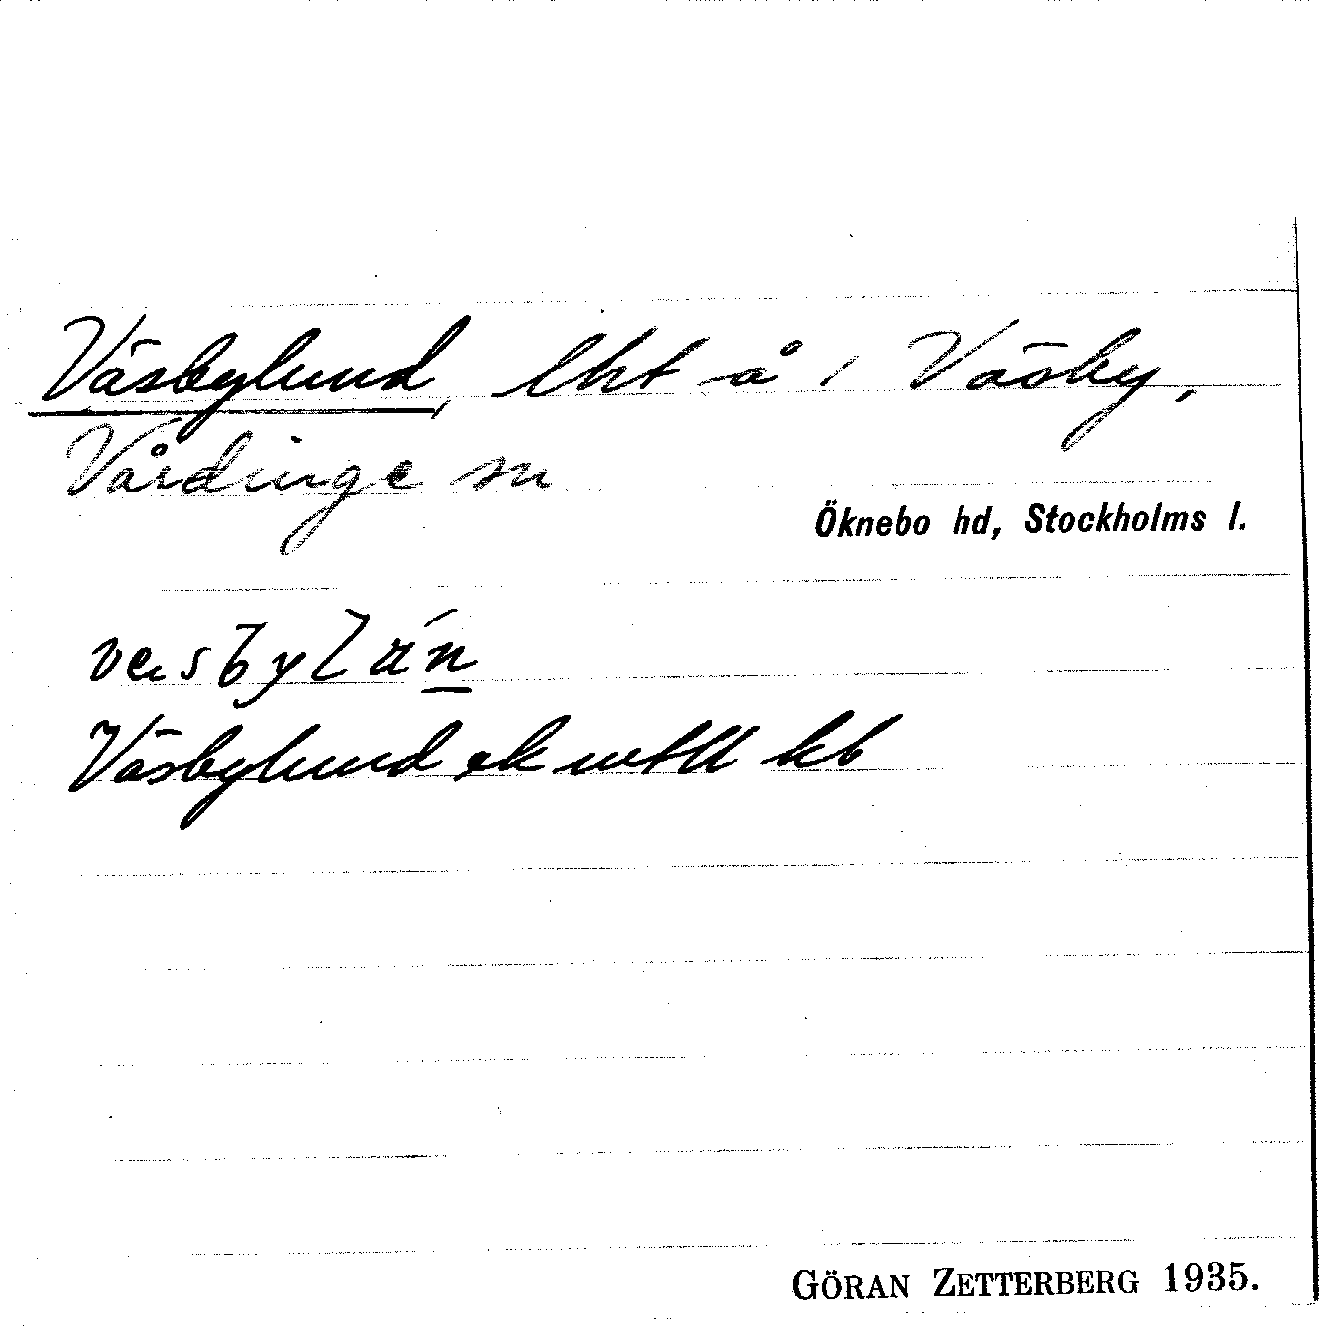 Väsbylund, lht å 1 Väsby,
Vårdinge sn
Öknebo hd, Stockholms l.
Väsbylund ek kb
GÖRAN ZETTERBERG 1935.